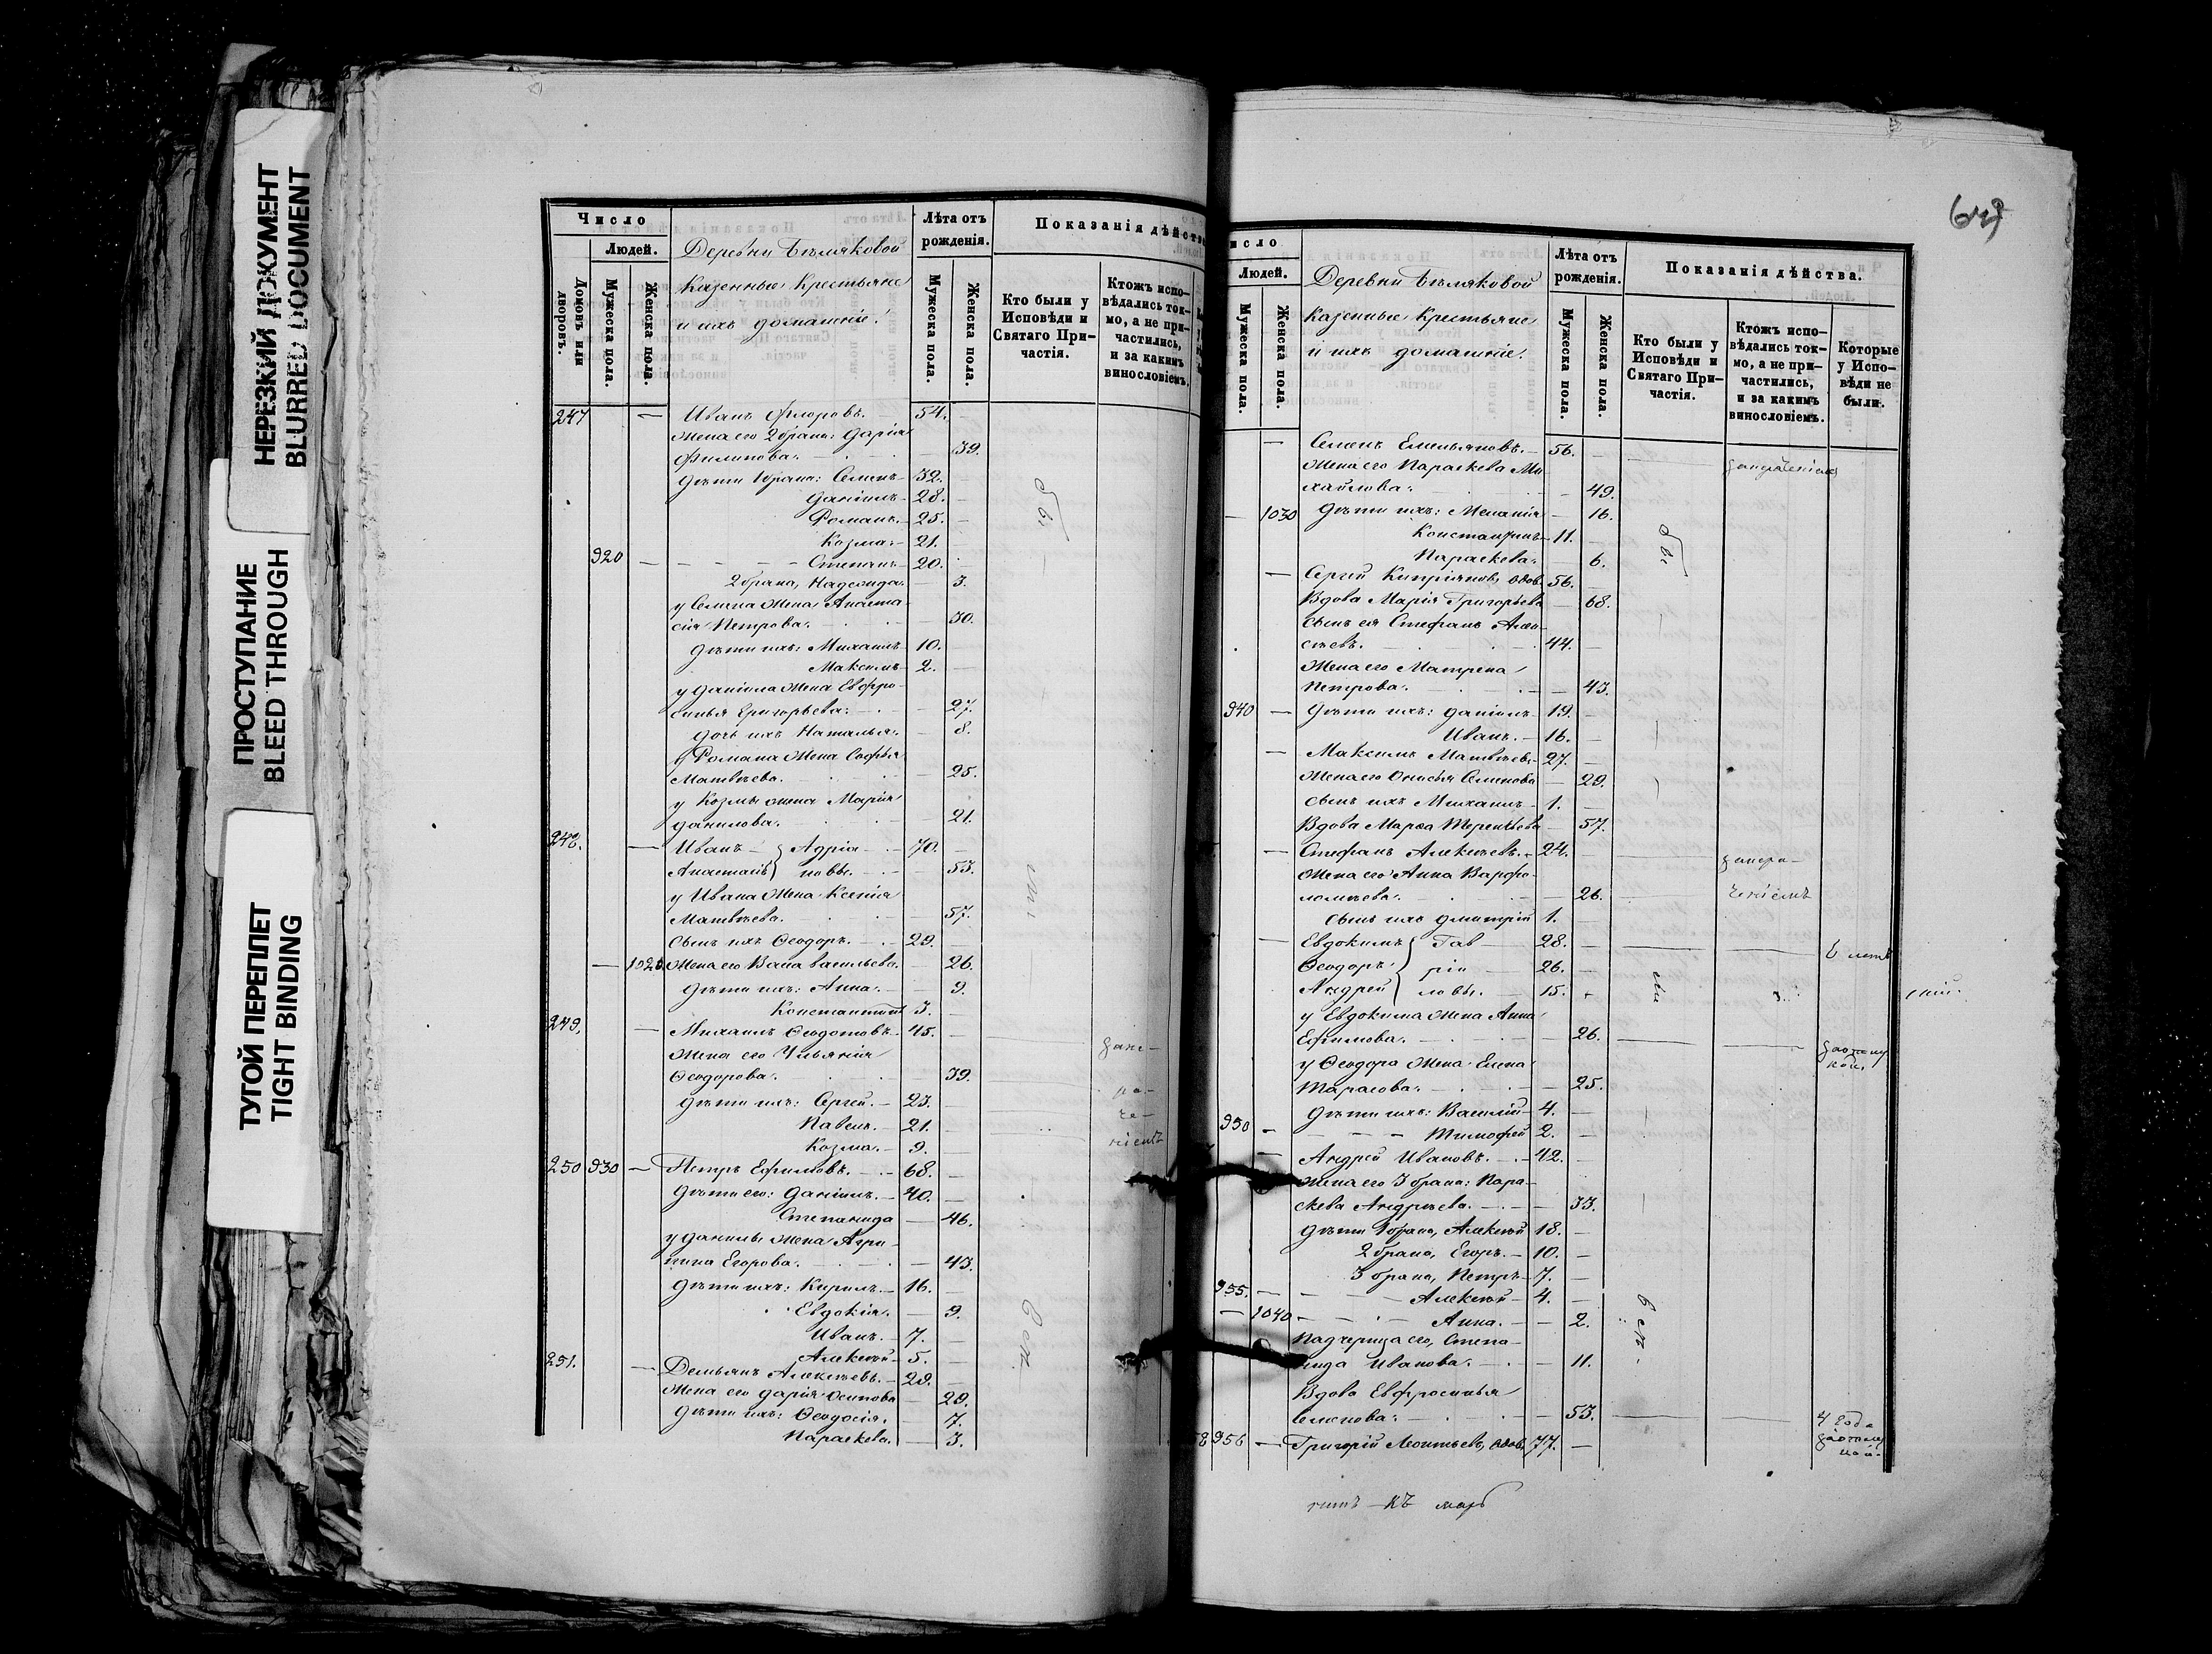 НЕРЕЗКИЙ ДОКУМЕНТ
BLURRED DOCUMENT
ПРОСТУПАНИЕ
BLEED THROUGH
ТУГОЙ ПЕРЕПЛЕТ
TIGHT BINDING
Число
Людей.
Домовъ или дворовъ.
Мужеска пола.
Женска пола.
Деревни Бѣляковой
Казенные Крестьяне
и ихъ домашніе:
Лѣта отъ рожденія.
Мужеска пола.
Женска пола.
Показанія дѣйства
Кто были у Исповѣди и Святаго Причастія.
Ктожъ исповѣдались токмо, а не причастились, и за какимъ винословіемъ.
247 — Иванъ Флоровъ. 54. —
Жена его 2 брака: Дарія
Филипова. 39.
Дѣти 1 брака: Семенъ 32. —
Даніилъ 28. —
Романъ. 25. —
Козма. 21. —
920 — Степанъ 20.
2 брака, Надежда. — 3.
у Семена жена Анаста-
сія Петрова. — 30.
Дѣти ихъ: Михаилъ 10. —
Максимъ 2. —
у Даніила жена Евфро-
синья Григорьева. — 27.
дочь ихъ Наталья. — 8.
у Романа жена Софья
Матвѣева. — 25.
у Козмы жена Марія
Данилова. 21.
248. — Иванъ Адріа- 70. —
Анастасія новы. — 53.
у Ивана жена Ксенія
Матвѣева. 57.
сынъ ихъ Ѳеодоръ. 29. —
— 1020 Жена его Васса Васильева. — 26.
Дѣти ихъ: Анна. — 9.
Константинъ 3. —
249. — Михаилъ Ѳеодотовъ. 45. —
Жена его Ульянія
Ѳеодорова. 39.
Дѣти ихъ: Сергей. 23. —
Павелъ. 21. —
Козма. 9. —
250 930 — Петръ Ефимовъ. 68. —
Дѣти его: Даніилъ. 40. —
Степанида — 46.
у Данилы жена Агри-
пина Егорова. — 43.
Дѣти ихъ: Кирилъ. 16. —
Евдокія. — 9.
Иванъ. 7. —
Алексѣй 5. —
251. — Демьянъ Алексѣевъ. 29. —
Жена его Дарія Осипова 29.
Дѣти ихъ: Ѳеодосія. — 7.
Параскева. — 3.
Людей.
Мужеска пола.
Женска пола.
Деревни Бѣляковой
Казенные Крестьяне
и ихъ домашніе.
Лѣта отъ рожденія.
Мужеска пола.
Женска пола.
Показанія дѣйства.
Кто были у Исповѣди и Святаго Причастія.
Ктожъ исповѣдались токмо, а не причастились, и за какимъ винословіемъ.
Которые у Исповѣди не были.
— Семенъ Емельяновъ. 56. —
Жена его Параскева Ми-
хайлова. — 49.
— 1030 Дѣти ихъ: Меланія — 16.
Константинъ 11. —
Параскева. 6.
— Сергей Кипріяновъ, вдов. 56. —
Вдова Марія Григорьева — 68.
сынъ ея Стефанъ Алек-
сѣевъ. 44. —
Жена его Матрена
Петрова. — 43.
940 — Дѣти ихъ: Даніилъ 19. —
Иванъ. 16. —
— Максимъ Матвѣевъ 27. —
Жена его Онисья Семенова — 29.
сынъ ихъ Михаилъ 1. —
Вдова Марѳа Терентьева — 57.
— Стефанъ Алексѣевъ. 24. —
Жена его Анна Варфо-
ломѣева. 26.
сынъ ихъ Дмитрій 1. —
— Евдокимъ Гав- 28. —
Ѳеодоръ рии- 26. —
Андрей ловы. 15.
у Евдокима жена Анна
Ефимова. — 26.
у Ѳеодора жена Елена
Тарасова. — 25.
Дѣти ихъ: Василій 4. —
950 — Тимофей 2. —
— Андрей Ивановъ. 42. —
Жена его 3 брака: Пара-
скева Андреева. — 33.
Дѣти 1 брака, Алексѣй 18. —
2 брака, Егоръ. 10. —
3 брака, Петръ 7. —
955. — Алексѣй 4. —
— 1040 Анна. — 2.
Падчерица его, Степа-
нида Иванова. — 11.
Вдова Евфросинья
Семенова. — 53.
956 — Григорій Леонтьевъ, вдов. 77. —